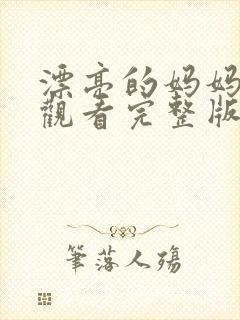 漂亮的妈妈
觀看完整版
筆落人殤